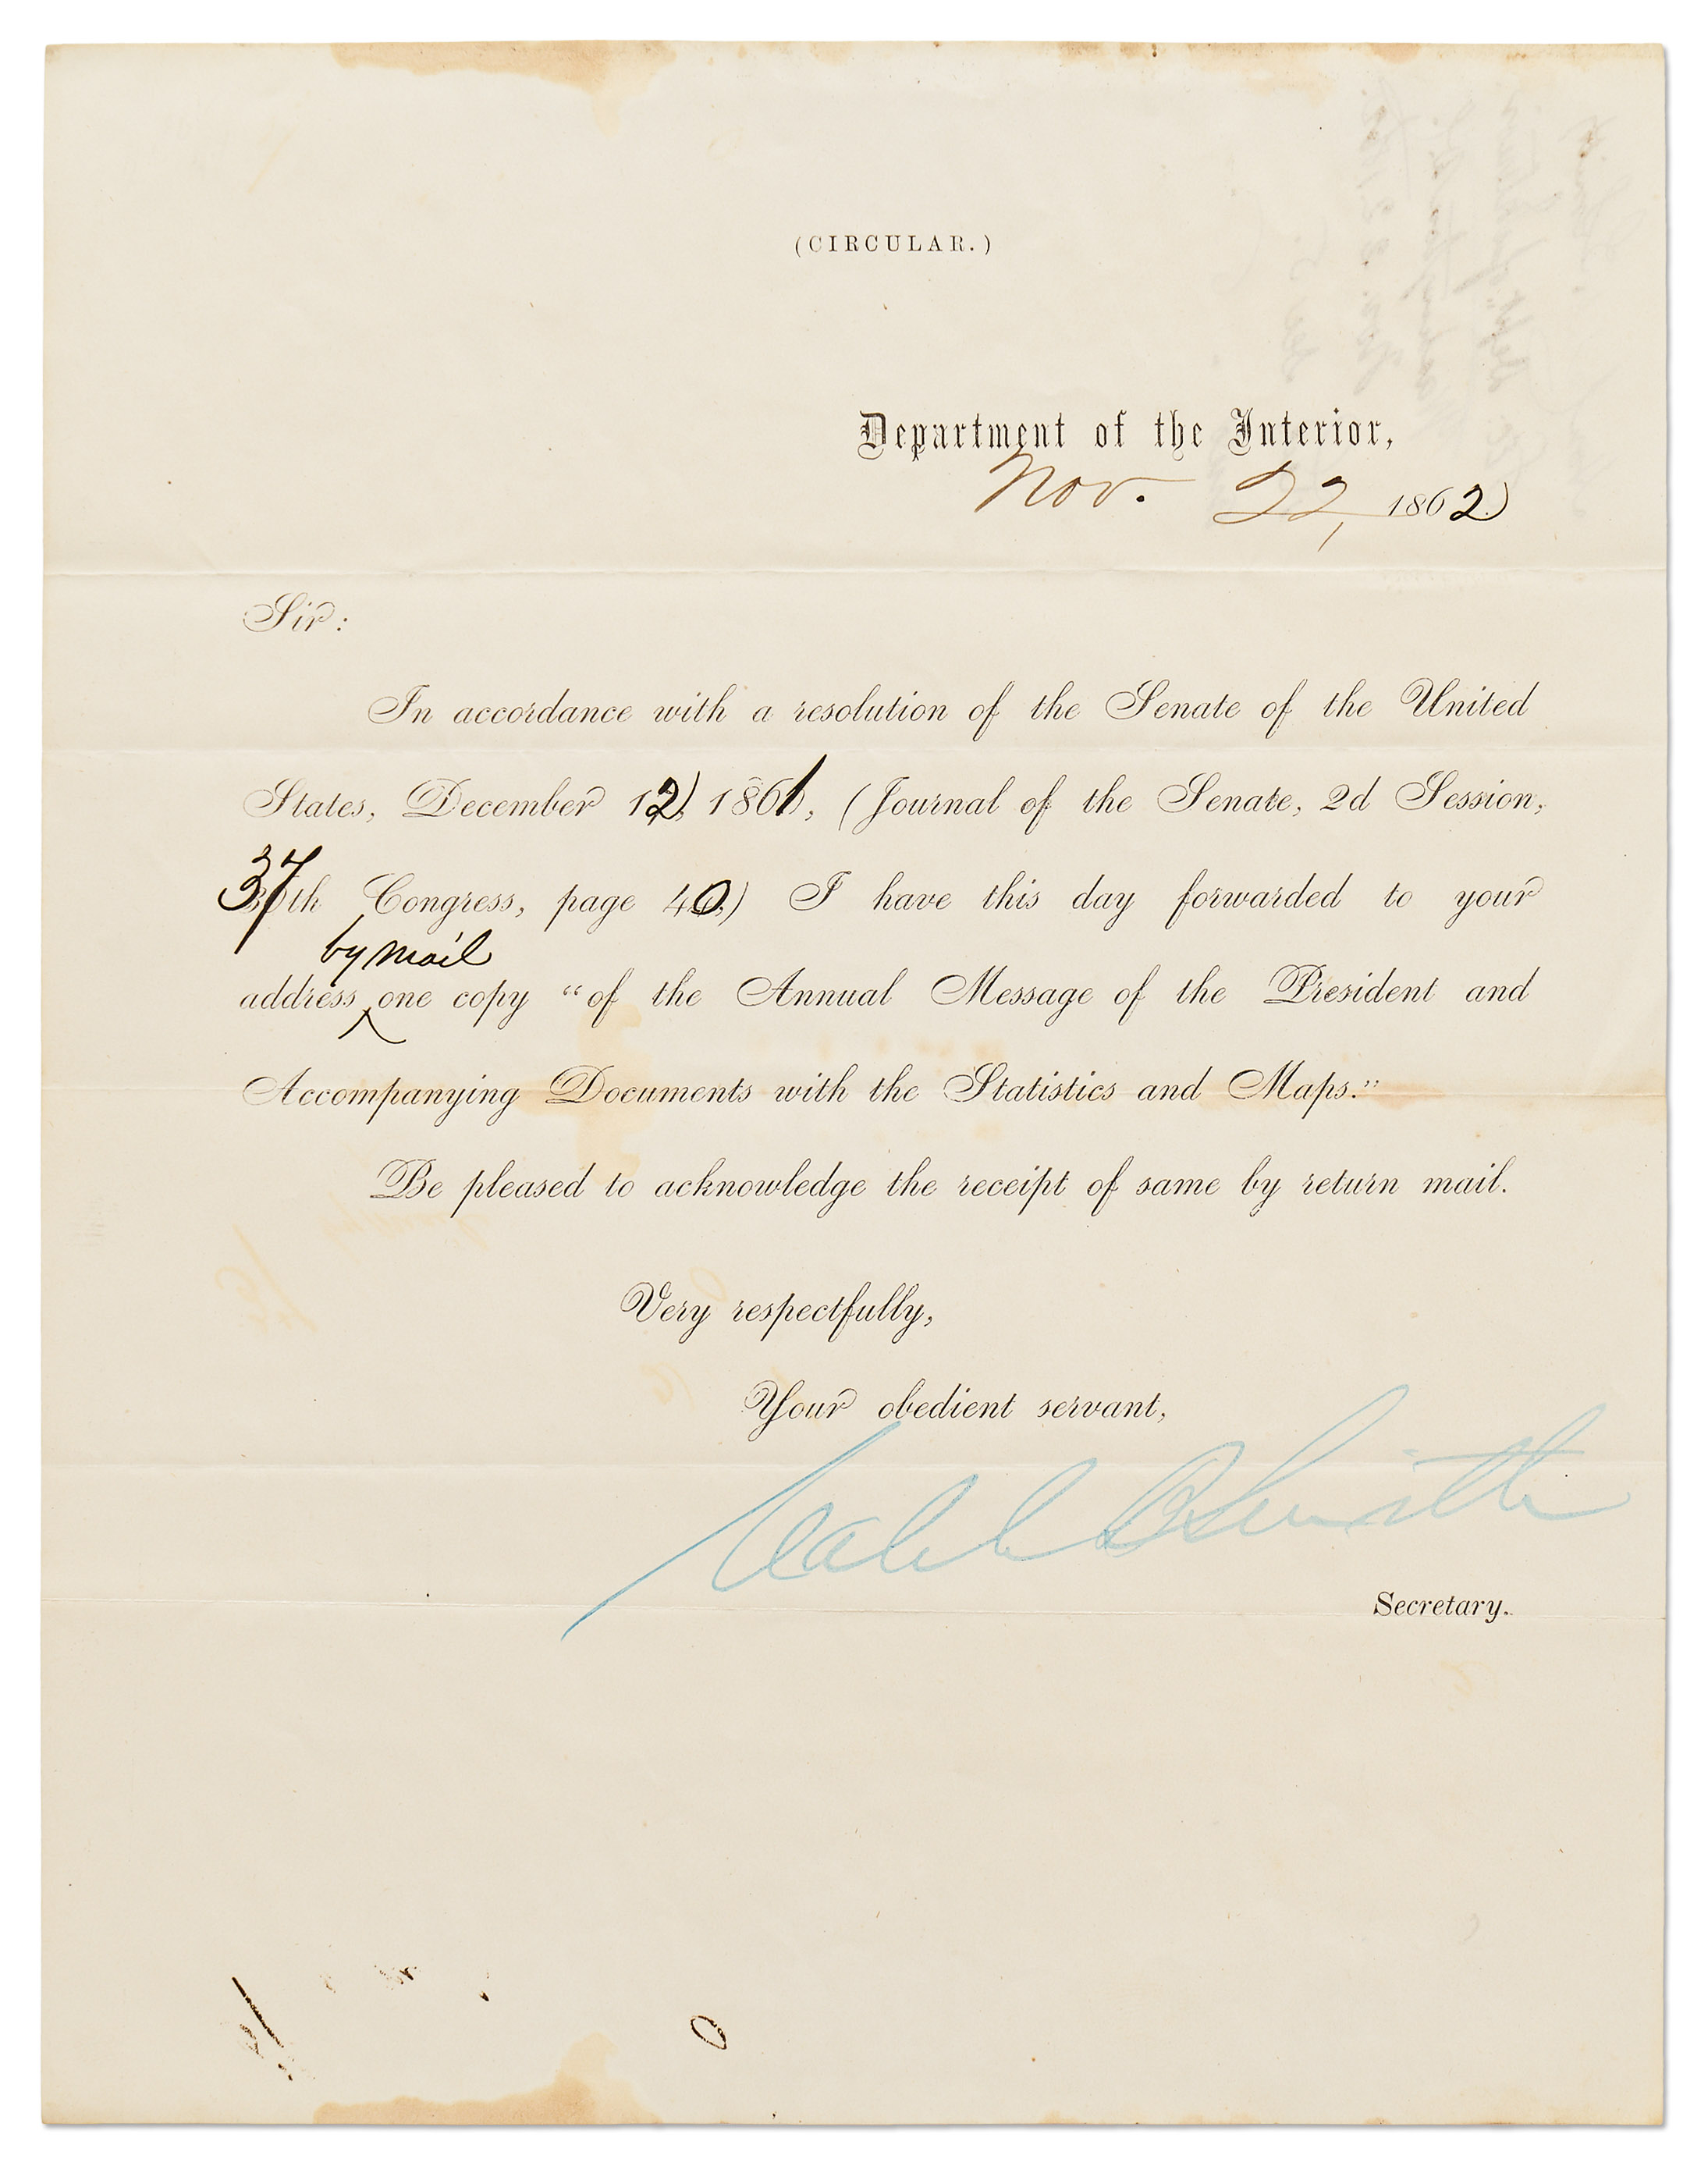 (CIRCULAR.)
Department of the Interior,
Nov. 22, 1862.
Sir:
In accordance with a resolution of the Senate of the United
States, December 12, 1861, (Journal of the Senate, 2d Session,
37th Congress, page 40,) I have this day forwarded to your
by mail
address, one copy "of the Annual Message of the President and
Accompanying Documents with the Statistics and Maps."
Be pleased to acknowledge the receipt of same by return mail.
Very respectfully,
Your obedient servant,
Caleb B Smith
Secretary.